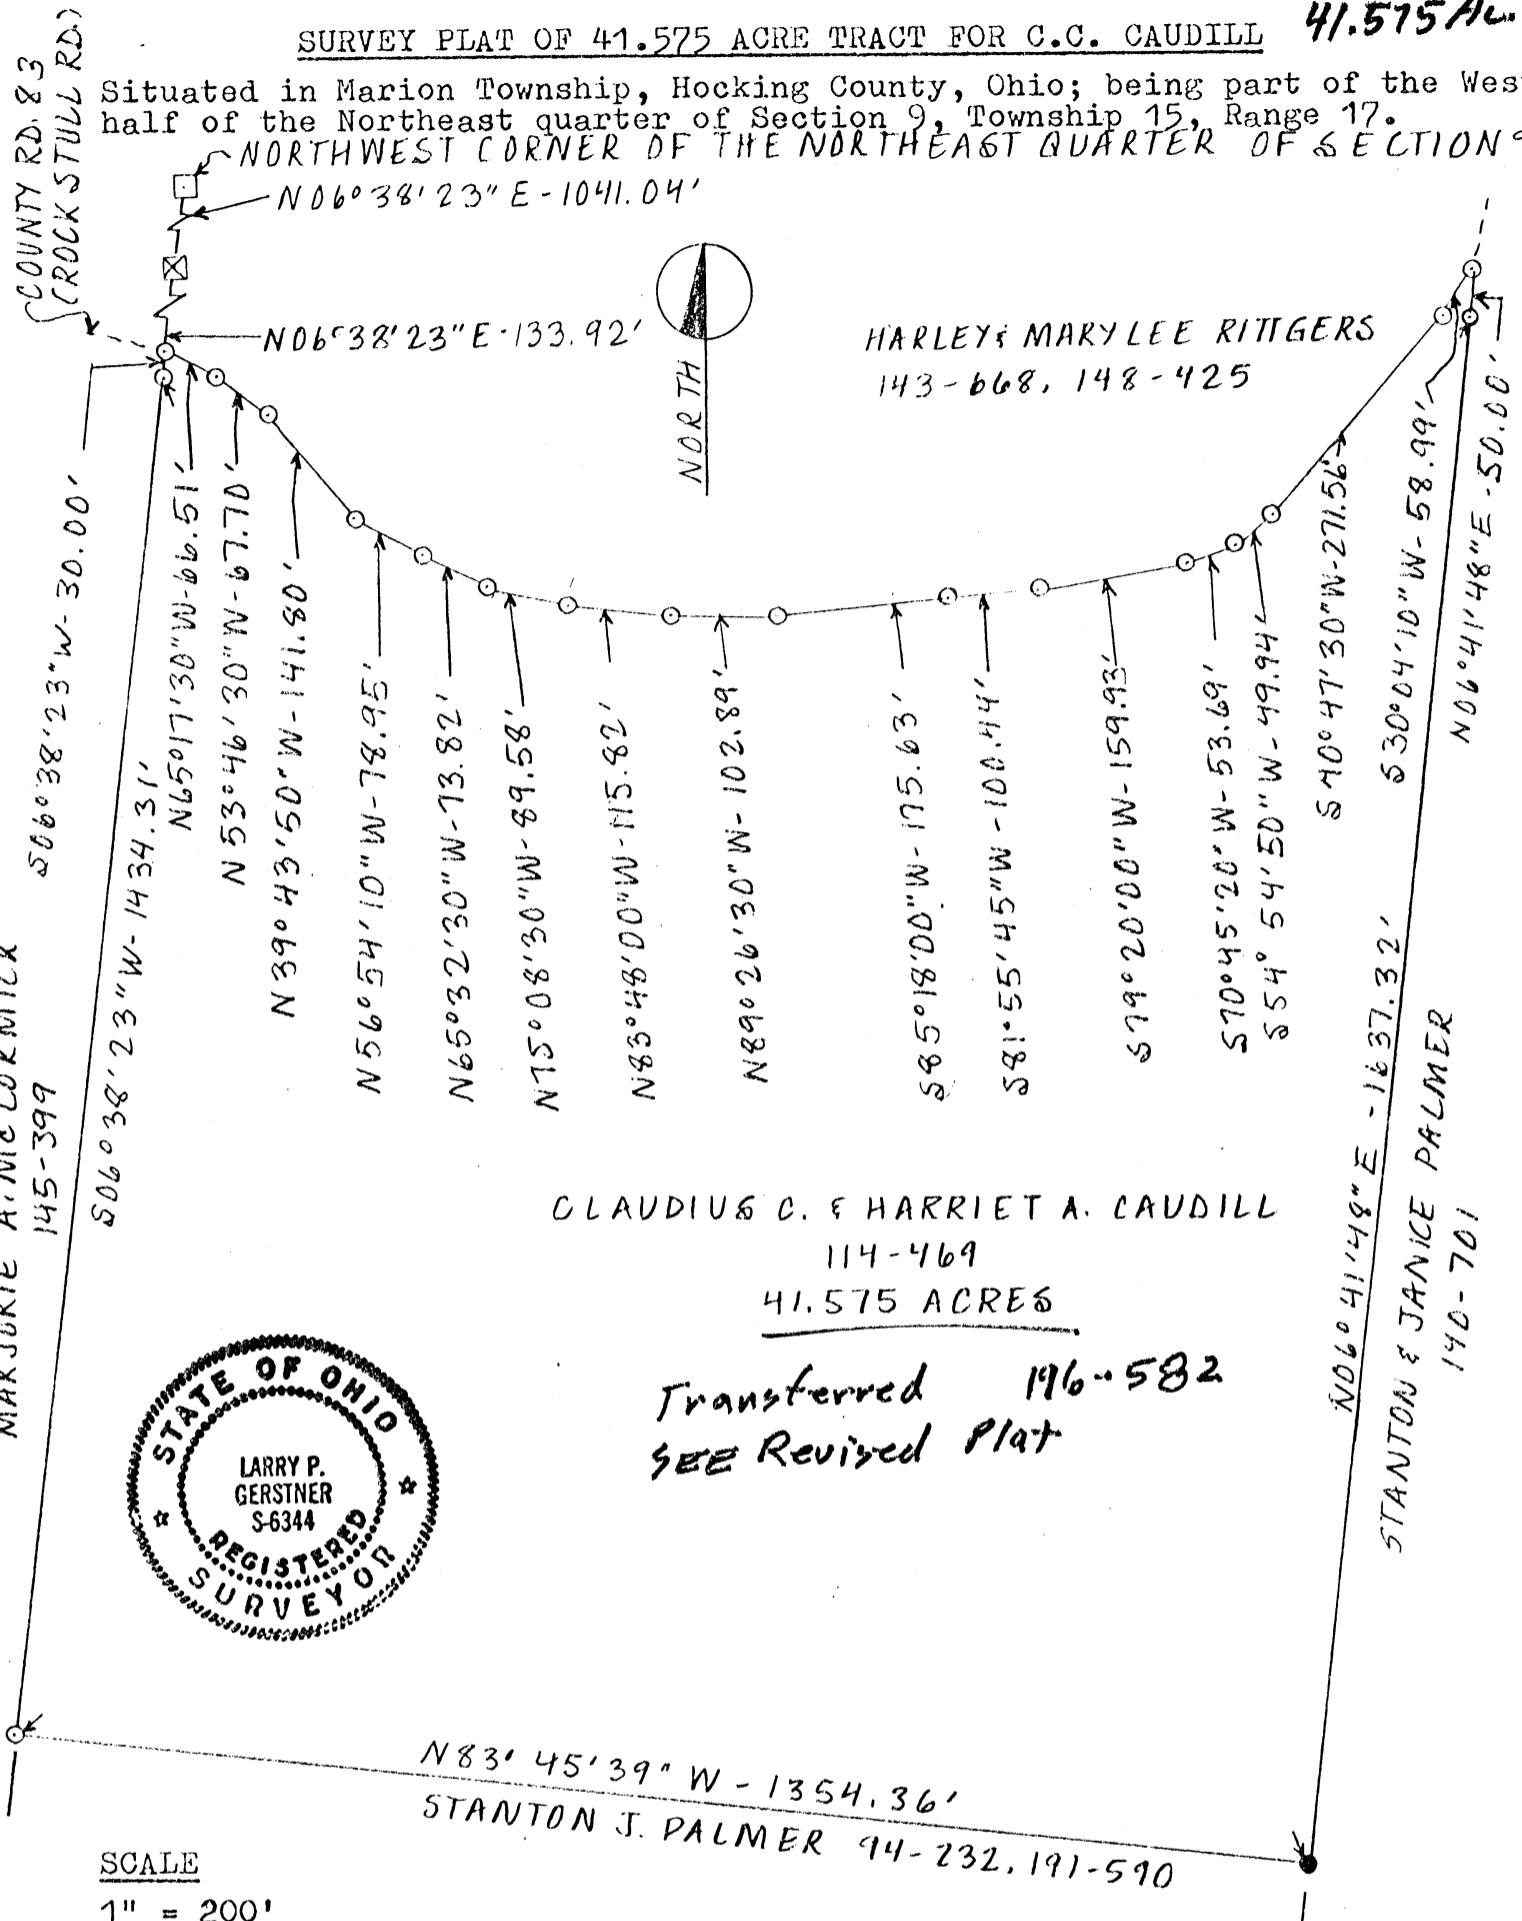 41.575 Ac.
SURVEY PLAT OF 41.575 ACRE TRACT FOR C.C. CAUDILL
Situated in Marion Township, Hocking County, Ohio; being part of the Wes
half of the Northeast quarter of Section 9, Township 15, Range 17.
NORTHWEST CORNER OF THE NORTHEAST QUARTER OF SECTION 9
COUNTY RD. 83
(ROCK STULL RD.)
N06°38'23"E-1041.04'
N06°38'23"E-133.92'
NORTH
HARLEY & MARY LEE RITTGERS
143-668, 148-425
S06°38'23"W-30.00'
S06°38'23"W-1434.31'
N65°17'30"W-66.51'
N53°46'30"W-67.70'
N39°43'50"W-141.80'
N56°54'10"W-78.95'
N65°32'30"W-73.82'
N75°08'30"W-89.58'
N83°48'00"W-115.82'
N89°26'30"W-102.89'
S85°18'00"W-175.63'
S81°55'45"W-100.44'
S79°20'00"W-159.93'
S70°45'20"W-53.69'
S54°54'50"W-49.94'
S40°47'30"W-271.56'
S30°04'10"W-58.99'
N06°41'48"E-50.00'
N06°41'48"E-1637.32'
MARJORIE A. MCCORMICK
145-399
STANTON & JANICE PALMER
140-701
CLAUDIUS C. & HARRIET A. CAUDILL
114-469
41.575 ACRES
Transferred 196-582
SEE Revised Plat
STATE OF OHIO
LARRY P.
GERSTNER
S-6344
REGISTERED
SURVEYOR
N83°45'39"W-1354.36'
STANTON J. PALMER 94-232, 191-590
SCALE
1" = 200'